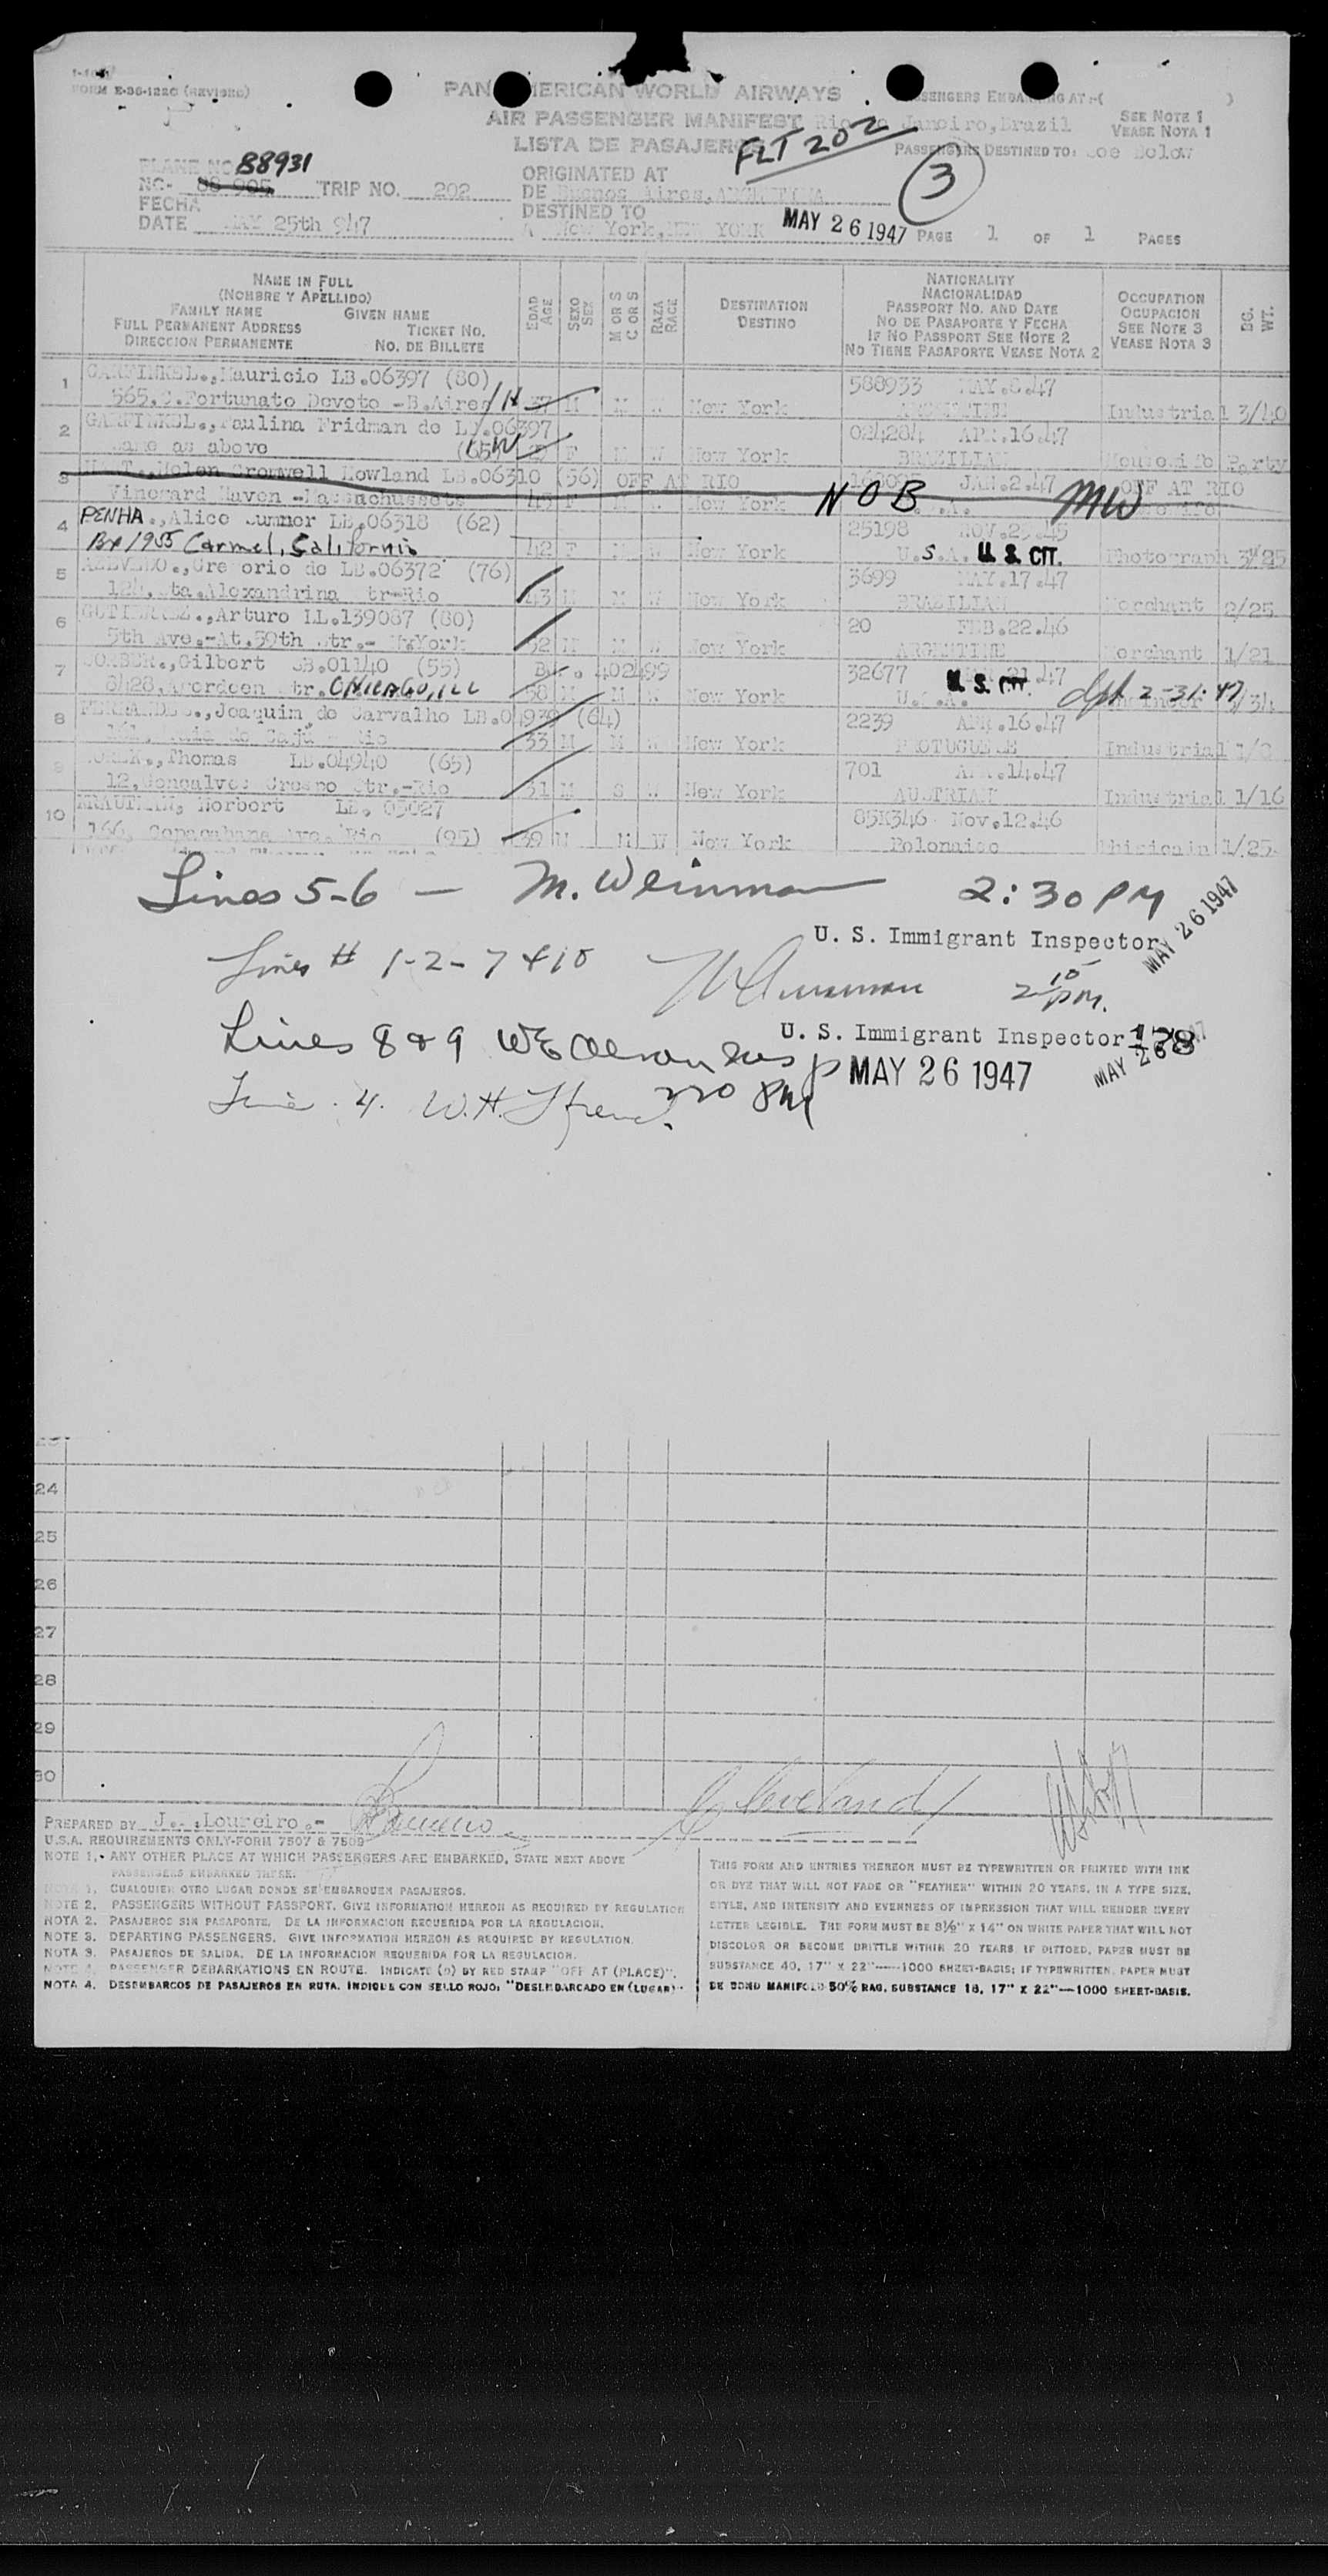 FORM E-36-122C (REVISED)
PAN AMERICAN WORLD AIRWAYS
AIR PASSENGER MANIFEST
LISTA DE PASAJEROS
FLT 202
PASSENGERS EMBARKING AT:-( )
Rio de Janeiro, Brazil
SEE NOTE 1
VEASE NOTA 1
PASSENGERS DESTINED TO: See Below
3
PLANE NO. 88931
NC- 88 905 TRIP NO. 202
FECHA
DATE MAY 25th 947
ORIGINATED AT
DE Buenos Aires, ARGENTINA
DESTINED TO
A New York, NEW YORK MAY 26 1947
PAGE 1 OF 1 PAGES
NAME IN FULL
(NOMBRE Y APELLIDO)
FAMILY NAME GIVEN NAME
FULL PERMANENT ADDRESS TICKET NO.
DIRECCION PERMANENTE NO. DE BILLETE
EDAD AGE
SEXO SEX
M OR S
C OR S
RAZA RACE
DESTINATION
DESTINO
NATIONALITY
NACIONALIDAD
PASSPORT NO. AND DATE
NO DE PASAPORTE Y FECHA
IF NO PASSPORT SEE NOTE 2
NO TIENE PASAPORTE VEASE NOTA 2
OCCUPATION
OCUPACION
SEE NOTE 3
VEASE NOTA 3
BG. WT.
1 GARFINKEL., Mauricio LB.06397 (80) 588933 MAY.8.47
565, Fortunato Devoto -B.Aires M M W New York ARGENTINE Industrial 3/40
2 GARFINKEL., Paulina Fridman de LB.06397 024284 APR.16.47
Same as above F M W New York BRAZILIAN Housewife Party
3 Helen Cromwell Howland LB.06310 (56) OFF AT RIO JAN.2.47 OFF AT RIO
Vineyard Haven -Massachussets 45 F New York NOB MW
4 PENHA., Alice Sumner LB.06318 (62) 25198 NOV.29.45
Bx 1955 Carmel, California 42 F M W New York U.S.A. U. S. CIT. Photograph 3/25
5 AZEVEDO., Gregorio de LB.06372 (76) 3699 MAY.17.47
Sta.Alexandrina Str-Rio 43 M M W New York BRAZILIAN Merchant 2/25
6 GUTIERREZ., Arturo LL.139087 (80) 20 FEB.22.46
5th Ave.-At.59th Str.- N.York 52 M M W New York ARGENTINE Merchant 1/21
7 Gilbert SB.01140 (55) 402499 32677 .47
8428, Aberdeen Str. CHICAGO, ILL 58 M M W New York U.S.A. U. S. CIT. Engineer /34
8 FERNANDES., Joaquim de Carvalho LB.04939 (64) 2239 APR.16.47
Rio 33 M M W New York PROTUGUESE Industrial 1/8
9 Thomas LB.04940 (65) 701 APR.14.47
12, Goncalves Crespo Str.-Rio 31 M S W New York AUSTRIAN Industrial 1/16
10 KRAUTMAN, Norbert LB. 05027 85K346 Nov.12.46
166, Copacabana Ave. Rio (95) 39 M M W New York Polonaise 1/25
Lines 5-6 — M. Weinman 2:30 PM
U. S. Immigrant Inspector MAY 26 1947
Lines # 1-2-7 & 10 2 15 PM.
U. S. Immigrant Inspector 178
MAY 26 1947
Lines 8 & 9 MAY 26 1947
Line 4. W.H. 220 PM
24
25
26
27
28
29
30
PREPARED BY J. Loureiro.- Cleveland
U.S.A. REQUIREMENTS ONLY-FORM 7507 & 7509
NOTE 1. ANY OTHER PLACE AT WHICH PASSENGERS ARE EMBARKED, STATE NEXT ABOVE
PASSENGERS EMBARKED THERE.
NOTA 1. CUALQUIER OTRO LUGAR DONDE SE EMBARQUEN PASAJEROS.
NOTE 2. PASSENGERS WITHOUT PASSPORT. GIVE INFORMATION HEREON AS REQUIRED BY REGULATION
NOTA 2. PASAJEROS SIN PASAPORTE. DE LA INFORMACION REQUERIDA POR LA REGULACION.
NOTE 3. DEPARTING PASSENGERS. GIVE INFORMATION HEREON AS REQUIRED BY REGULATION.
NOTA 3. PASAJEROS DE SALIDA. DE LA INFORMACION REQUERIDA FOR LA REGULACION.
NOTE 4. PASSENGER DEBARKATIONS EN ROUTE. INDICATE (O) BY RED STAMP "OFF AT (PLACE)".
NOTA 4. DESEMBARCOS DE PASAJEROS EN RUTA. INDIQUE CON SELLO ROJO: "DESEMBARCADO EN (LUGAR)".
THIS FORM AND ENTRIES THEREON MUST BE TYPEWRITTEN OR PRINTED WITH INK
OR DYE THAT WILL NOT FADE OR "FEATHER" WITHIN 20 YEARS, IN A TYPE SIZE,
STYLE, AND INTENSITY AND EVENNESS OF IMPRESSION THAT WILL RENDER EVERY
LETTER LEGIBLE. THE FORM MUST BE 8½" X 14" ON WHITE PAPER THAT WILL NOT
DISCOLOR OR BECOME BRITTLE WITHIN 20 YEARS IF DITTOED, PAPER MUST BE
SUBSTANCE 40, 17" X 22"—1000 SHEET-BASIS; IF TYPEWRITTEN, PAPER MUST
BE BOND MANIFOLD 50% RAG, SUBSTANCE 18, 17" X 22"—1000 SHEET-BASIS.